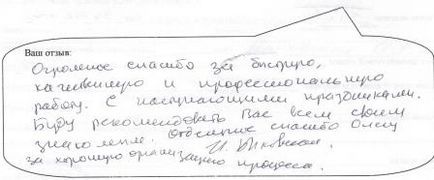 Ваш отзыв:
Огромное спасибо за быструю,
качественную и профессиональную
работу. С наступающими праздниками.
Буду рекомендовать Вас всем своим
знакомым. Отдельное спасибо Олегу
за хорошую организацию процесса.
И.